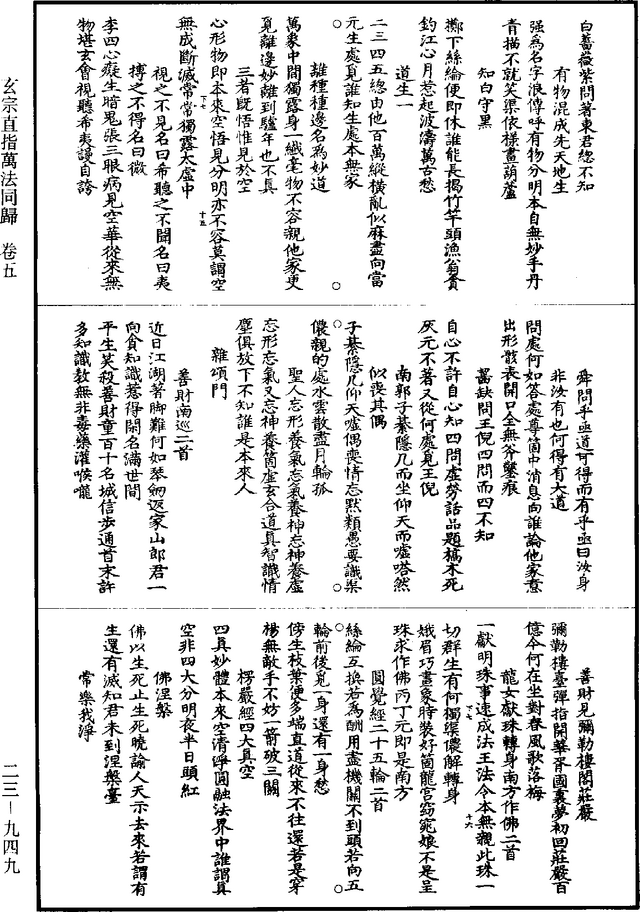 白薔薇架問著東君緫不知
有物混成先天地生
强爲名字浪傳呼有物分明本自無妙手丹
青描不就笑渠依樣畫葫蘆
知白守黑
擲下絲綸便即休誰能長揭竹竿頭漁翁貪
釣江心月惹起波濤萬古愁
道生一
二三四五總由他百萬縱橫亂似麻盡向當
元生處覓誰知生處本無家
離種種邊名爲妙道
萬象中間獨露身一纖毫物不容親他家更
覓離邊妙離到驢年也不真
三者既悟惟見於空
心形物即本來空悟見分明亦不容莫謂空
無成斷滅常常獨露太虛中
視之不見名曰希聽之不聞名曰夷
搏之不得名曰微
李四心癡生暗鬼張三眼病見空華從來無
物堪玄會視聽希夷謾自誇
舜問乎丞道可得而有乎丞曰汝身
非汝有也何得有大道
問處何如答處尊箇中消息向誰論他家意
出形骸表開口全無斧鑿痕
齧缺問王倪四問而四不知
自心不許自心知四問虛勞話品題槁木死
灰元不著又從何處見王倪
南郭子綦隱几而坐仰天而噓嗒然
似喪其偶
子綦隱几仰天噓偶喪情忘默類愚要識渠
儂親的處水雲散盡月輪孤
聖人忘形養氣忘氣養神忘神養虛
忘形忘氣又忘神養箇虛玄合道真智識情
塵俱放下不知誰是本來人
雜頌門
善財南巡二首
近日江湖著脚難何如琴劒返家山郎君一
向貪知識惹得閑名滿世間
平生笑殺善財童百十名城信步通首末許
多知識敎無非毒藥灌喉嚨
善財見彌勒樓閣莊嚴
彌勒樓臺彈指開華胥國裏夢初回莊嚴百
億今何在坐對春風歌落梅
龍女獻珠轉身南方作佛二首
一獻明珠事速成法王法令本無親此珠一
切群生有何獨渠儂解轉身
娥眉巧畫象時裝好箇龍宮窈窕娘不是呈
珠求作佛丙丁元即是南方
圓覺經二十五輪二首
絲綸互換若爲酬用盡機關不到頭若向五
輪前後覓一身還有一身愁
傍生枝葉便多端直道從來不往還若是穿
楊無敵手不妨一箭破三關
楞嚴經四大真空
四真妙體本來空清淨圓融法界中誰謂真
空非四大分明夜半日頭紅
佛涅槃
佛以生死止生死曉諭人天示去來若謂有
生還有滅知君未到涅槃臺
常樂我淨
玄宗直指萬法同歸　卷五
二三—九四九
下七
十五
下七
十六